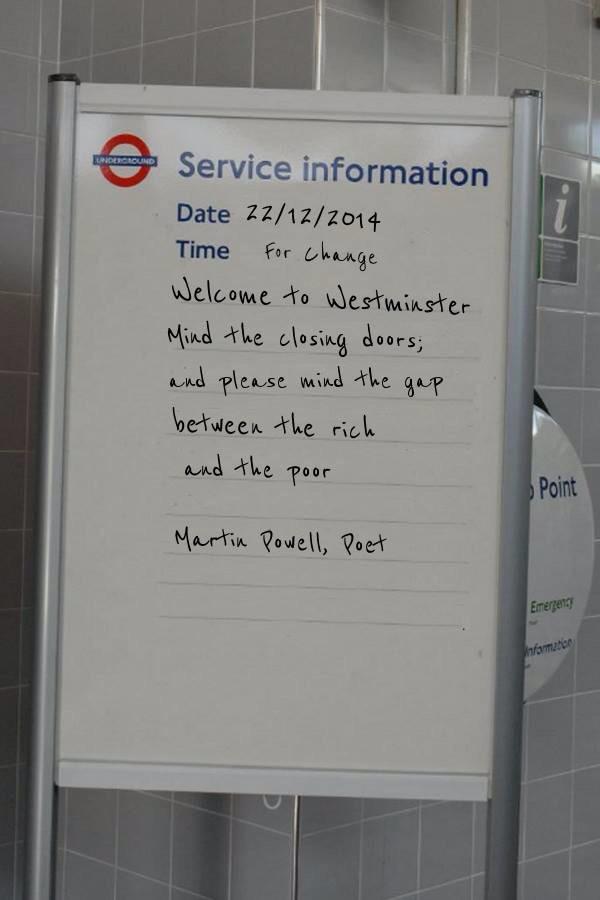 UNDERGROUND
Service information
Date 22/12/2014
Time For Change
Welcome to Westminster
Mind the closing doors;
and please mind the gap
between the rich
and the poor
Martin Powell, Poet
i
Point
Emergency
Information